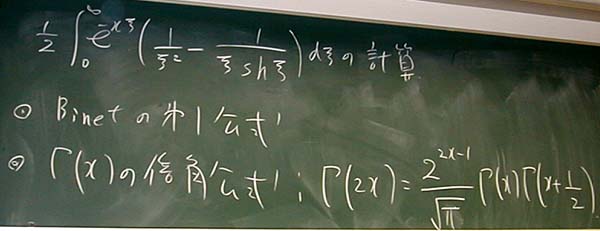 1/2 ∫₀^∞ e^{-xξ} (1/ξ² - 1/(ξ sh ξ)) dξ の計算
◎ Binetの第1公式
◎ Γ(x)の倍角公式; Γ(2x) = 2^{2x-1}/√π Γ(x)Γ(x+1/2)